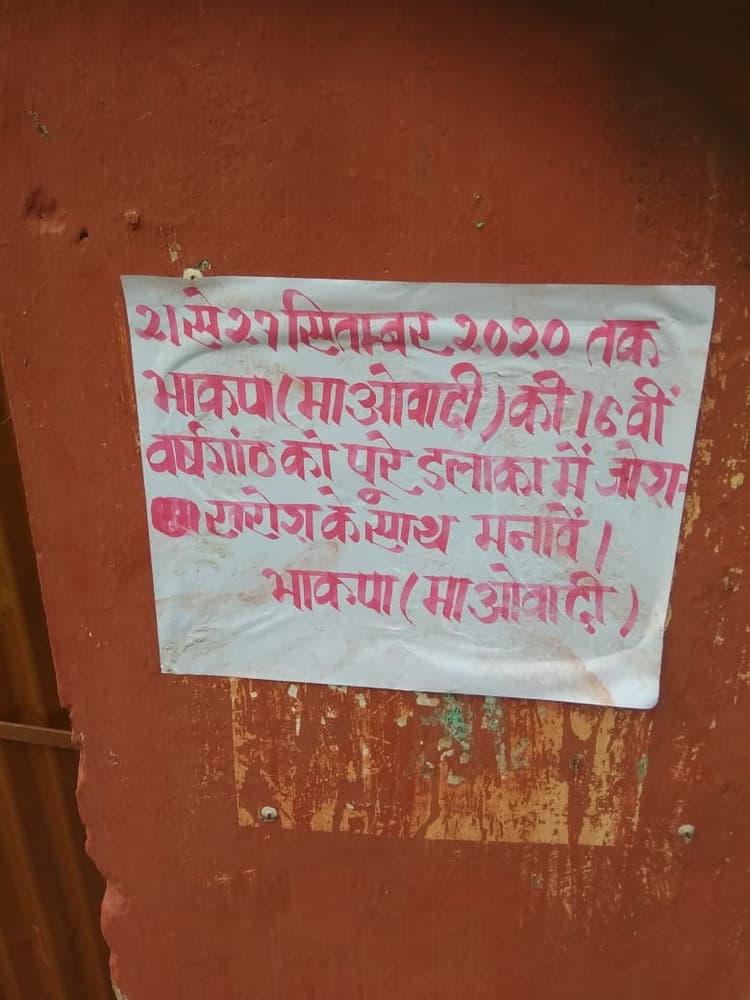 21 से 27 सितम्बर 2020 तक
भाकपा (माओवादी) की 16 वीं
वर्षगांठ को पूरे इलाका में जोश-
खरोश के साथ मनावें।
भाकपा (माओवादी)